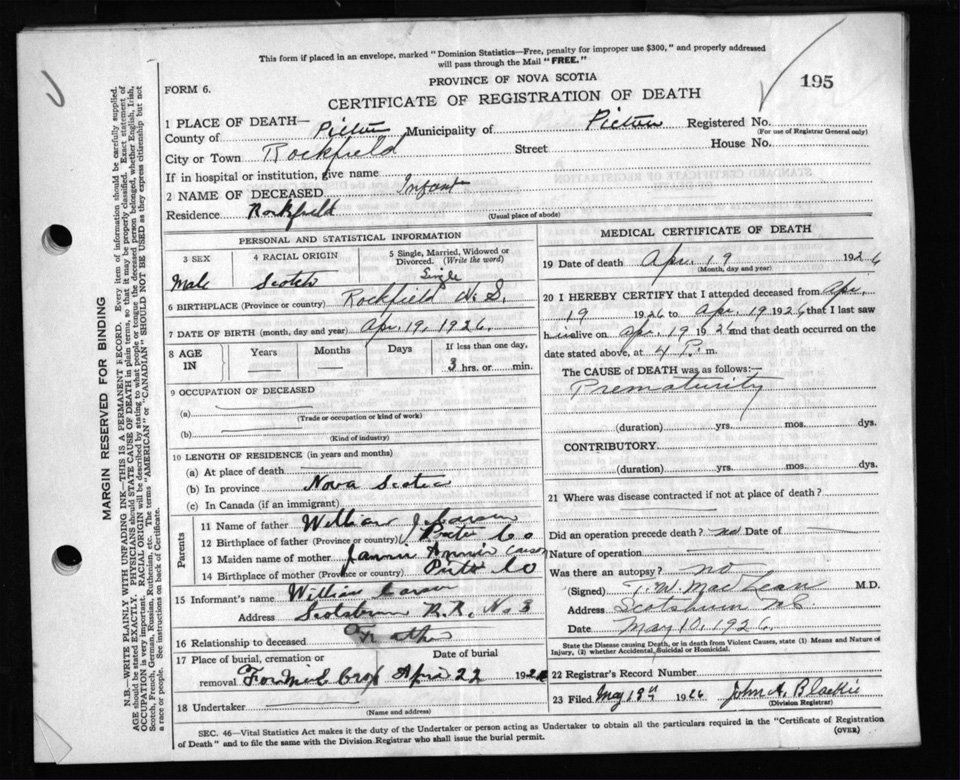 This form if placed in an envelope, marked "Dominion Statistics—Free, penalty for improper use $300," and properly addressed
will pass through the Mail "FREE."
PROVINCE OF NOVA SCOTIA
195
FORM 6.
CERTIFICATE OF REGISTRATION OF DEATH
1 PLACE OF DEATH—
County of Pictou Municipality of Pictou Registered No.
(For use of Registrar General only)
City or Town Rockfield Street House No.
If in hospital or institution, give name
2 NAME OF DECEASED Infant
Residence Rockfield
(Usual place of abode)
PERSONAL AND STATISTICAL INFORMATION
3 SEX
Male
4 RACIAL ORIGIN
Scotch
5 Single, Married, Widowed or
Divorced. (Write the word)
Single
6 BIRTHPLACE (Province or country) Rockfield N.S.
7 DATE OF BIRTH (month, day and year) Apr. 19, 1926.
8 AGE
IN
Years
Months
Days
If less than one day,
3 hrs. or min.
9 OCCUPATION OF DECEASED
(a)
(Trade or occupation or kind of work)
(b)
(Kind of industry)
10 LENGTH OF RESIDENCE (in years and months)
(a) At place of death
(b) In province Nova Scotia
(c) In Canada (if an immigrant)
Parents
11 Name of father William J. Carson
12 Birthplace of father (Province or country) Co
13 Maiden name of mother Annie Carson
14 Birthplace of mother (Province or country) Co
15 Informant's name William Carson
Address Scotsburn R.R. No 3
16 Relationship to deceased Father
17 Place of burial, cremation or
removal
Date of burial
April 22 192
18 Undertaker
(Name and address)
MEDICAL CERTIFICATE OF DEATH
19 Date of death Apr. 19 1926
(Month, day and year)
20 I HEREBY CERTIFY that I attended deceased from Apr.
19 1926 to Apr. 19 1926 that I last saw
him alive on Apr. 19 1926 and that death occurred on
date stated above, at 4 P. m.
The CAUSE of DEATH was as follows:—
Prematurity
(duration) yrs. mos. dys.
CONTRIBUTORY.
(duration) yrs. mos. dys.
21 Where was disease contracted if not at place of death?
Did an operation precede death? no Date of
Nature of operation
Was there an autopsy? no
(Signed) T. W. MacLean M.D.
Address Scotsburn N.S.
Date May 10, 1926.
State the Disease causing Death, or in death from Violent Causes, state (1) Means and Nature of
Injury, (2) whether Accidental, Suicidal or Homicidal.
22 Registrar's Record Number
23 Filed May 13th 1926 John A. Blaikie
(Division Registrar)
SEC. 46—Vital Statistics Act makes it the duty of the Undertaker or person acting as Undertaker to obtain all the particulars required in the "Certificate of Registration
of Death" and to file the same with the Division Registrar who shall issue the burial permit.
(OVER)
MARGIN RESERVED FOR BINDING
N.B.—WRITE PLAINLY WITH UNFADING INK—THIS IS A PERMANENT RECORD. Every item of information should be carefully supplied.
AGE should be stated EXACTLY. PHYSICIANS should STATE CAUSE OF DEATH in plain terms, so that it may be properly classified. Exact statement of
OCCUPATION is very important. RACIAL ORIGIN will be described by stating to what people or tongue the deceased person belonged, whether English, Irish,
Scotch, French, German, Russian, Ruthenian, etc. The terms "AMERICAN" or "CANADIAN" SHOULD NOT BE USED as they express citizenship but not
a race or people. See instructions on back of Certificate.